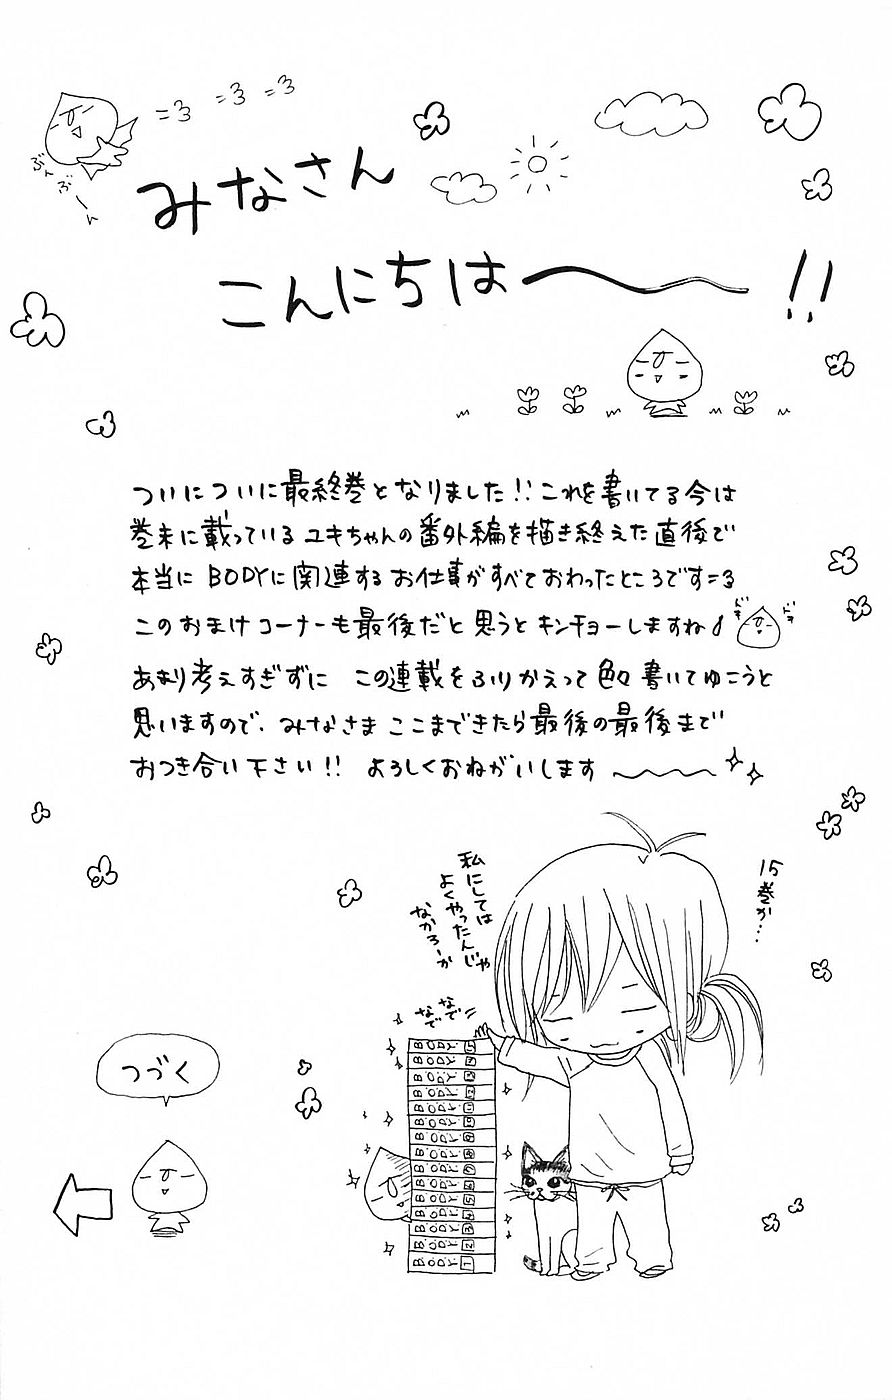 みなさん
こんにちは〜!!
ぶんぶーん
ついについに最終巻となりました!!これを書いてる今は
巻末に載っているユキちゃんの番外編を描き終えた直後で
本当にBODYに関連するお仕事がすべておわったところです=3
このおまけコーナーも最後だと思うとキンチョーしますね♪
ドキ
ドキ
あまり考えすぎずに この連載をふりかえって色々書いてゆこうと
思いますので、みなさまここまできたら最後の最後まで
おつき合い下さい!! よろしくおねがいします〜
15巻か…
私にしては
よくやったんじゃ
なかろーか
なで
なで
B.O.D.Y. 15
B.O.D.Y. 14
B.O.D.Y. 13
B.O.D.Y. 12
B.O.D.Y. 11
B.O.D.Y. 10
B.O.D.Y. 9
B.O.D.Y. 8
B.O.D.Y. 7
B.O.D.Y. 6
B.O.D.Y. 5
B.O.D.Y. 4
B.O.D.Y. 3
B.O.D.Y. 2
B.O.D.Y. 1
つづく